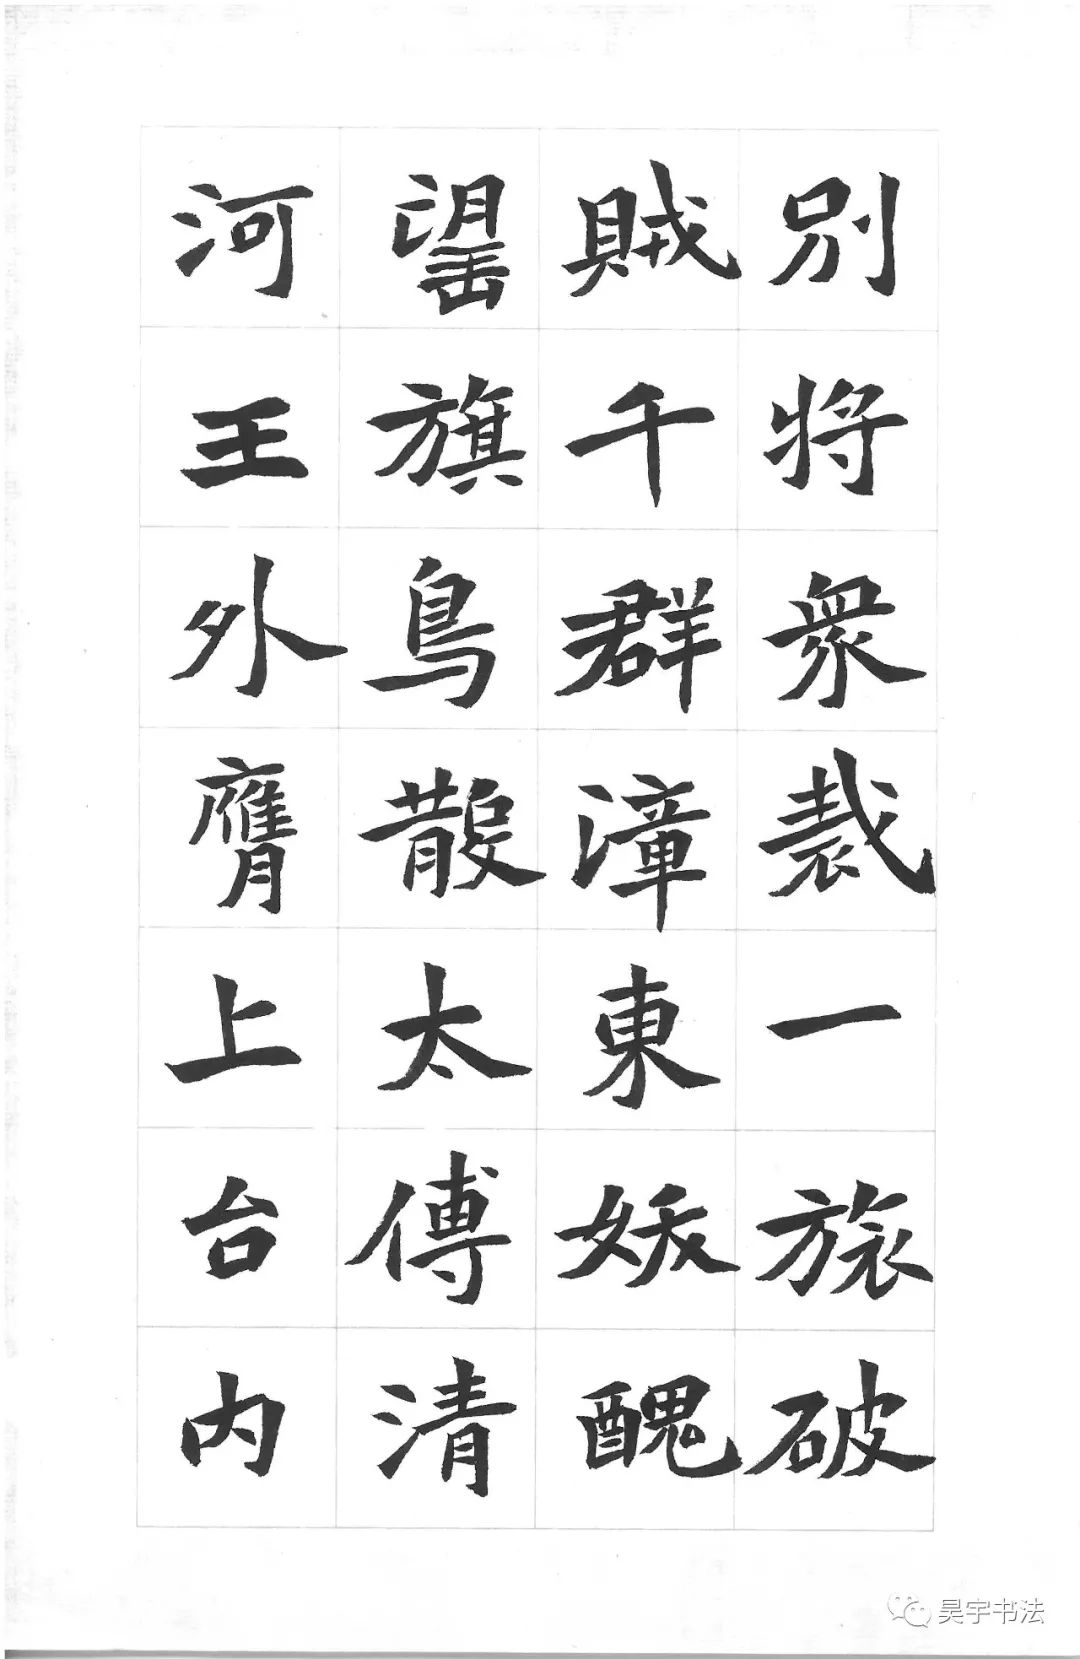 別將衆裁一旅破
賊千群漳東妖醜
望旗鳥散太傅清
河王外膺上台内
昊宇书法